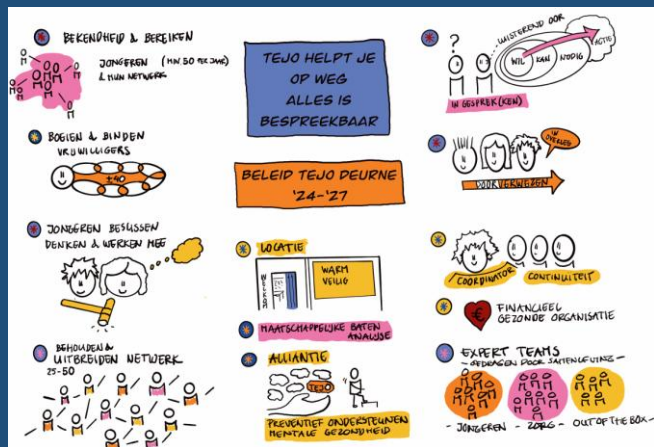 BEKENDHEID & BEREIKEN
JONGEREN (MIN 50 PER JAAR)
& HUN NETWERK
BOEIEN & BINDEN
VRIJWILLIGERS
± 40
JONGEREN BESLISSEN
DENKEN & WERKEN MEE
BEHOUDEN &
UITBREIDEN NETWERK
25-50
TEJO HELPT JE
OP WEG
ALLES IS
BESPREEKBAAR
BELEID TEJO DEURNE
'24-'27
LOCATIE
WELKOM
WARM
VEILIG
MAATSCHAPPELIJKE BATEN
ANALYSE
ALLIANTIE
TEJO
PREVENTIEF ONDERSTEUNEN
MENTALE GEZONDHEID
?
LUISTEREND OOR
WIL KAN NODIG
ACTIE
IN GESPREK(KEN)
IN OVERLEG
DOORVERWIJZEN
COORDINATOR
CONTINUITEIT
€
FINANCIEEL
GEZONDE ORGANISATIE
EXPERT TEAMS
- GEDRAGEN DOOR SAMENLEVING -
- JONGEREN - ZORG - OUT OF THE BOX -